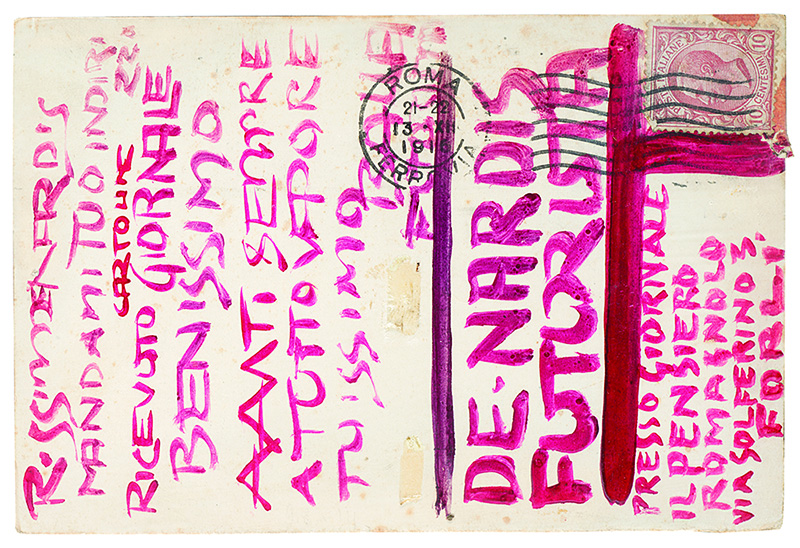 R.SSIMO DE NARDIS
MANDAMI TUO INDIRI
ZZO.
CARTOLINE
RICEVUTO GIORNALE
BENISSIMO
AVANTI SEMPRE
A TUTTO VAPORE
TUISSIMO
DE.NARDIS
FUTURISTA
PRESSO GIORNALE
IL PENSIERO
ROMAGNOLO
VIA SOLFERINO 3
FORLÌ.
ROMA
21-22
13
191
FERROVIA
ITALIANE
10
CENTESIMI
10